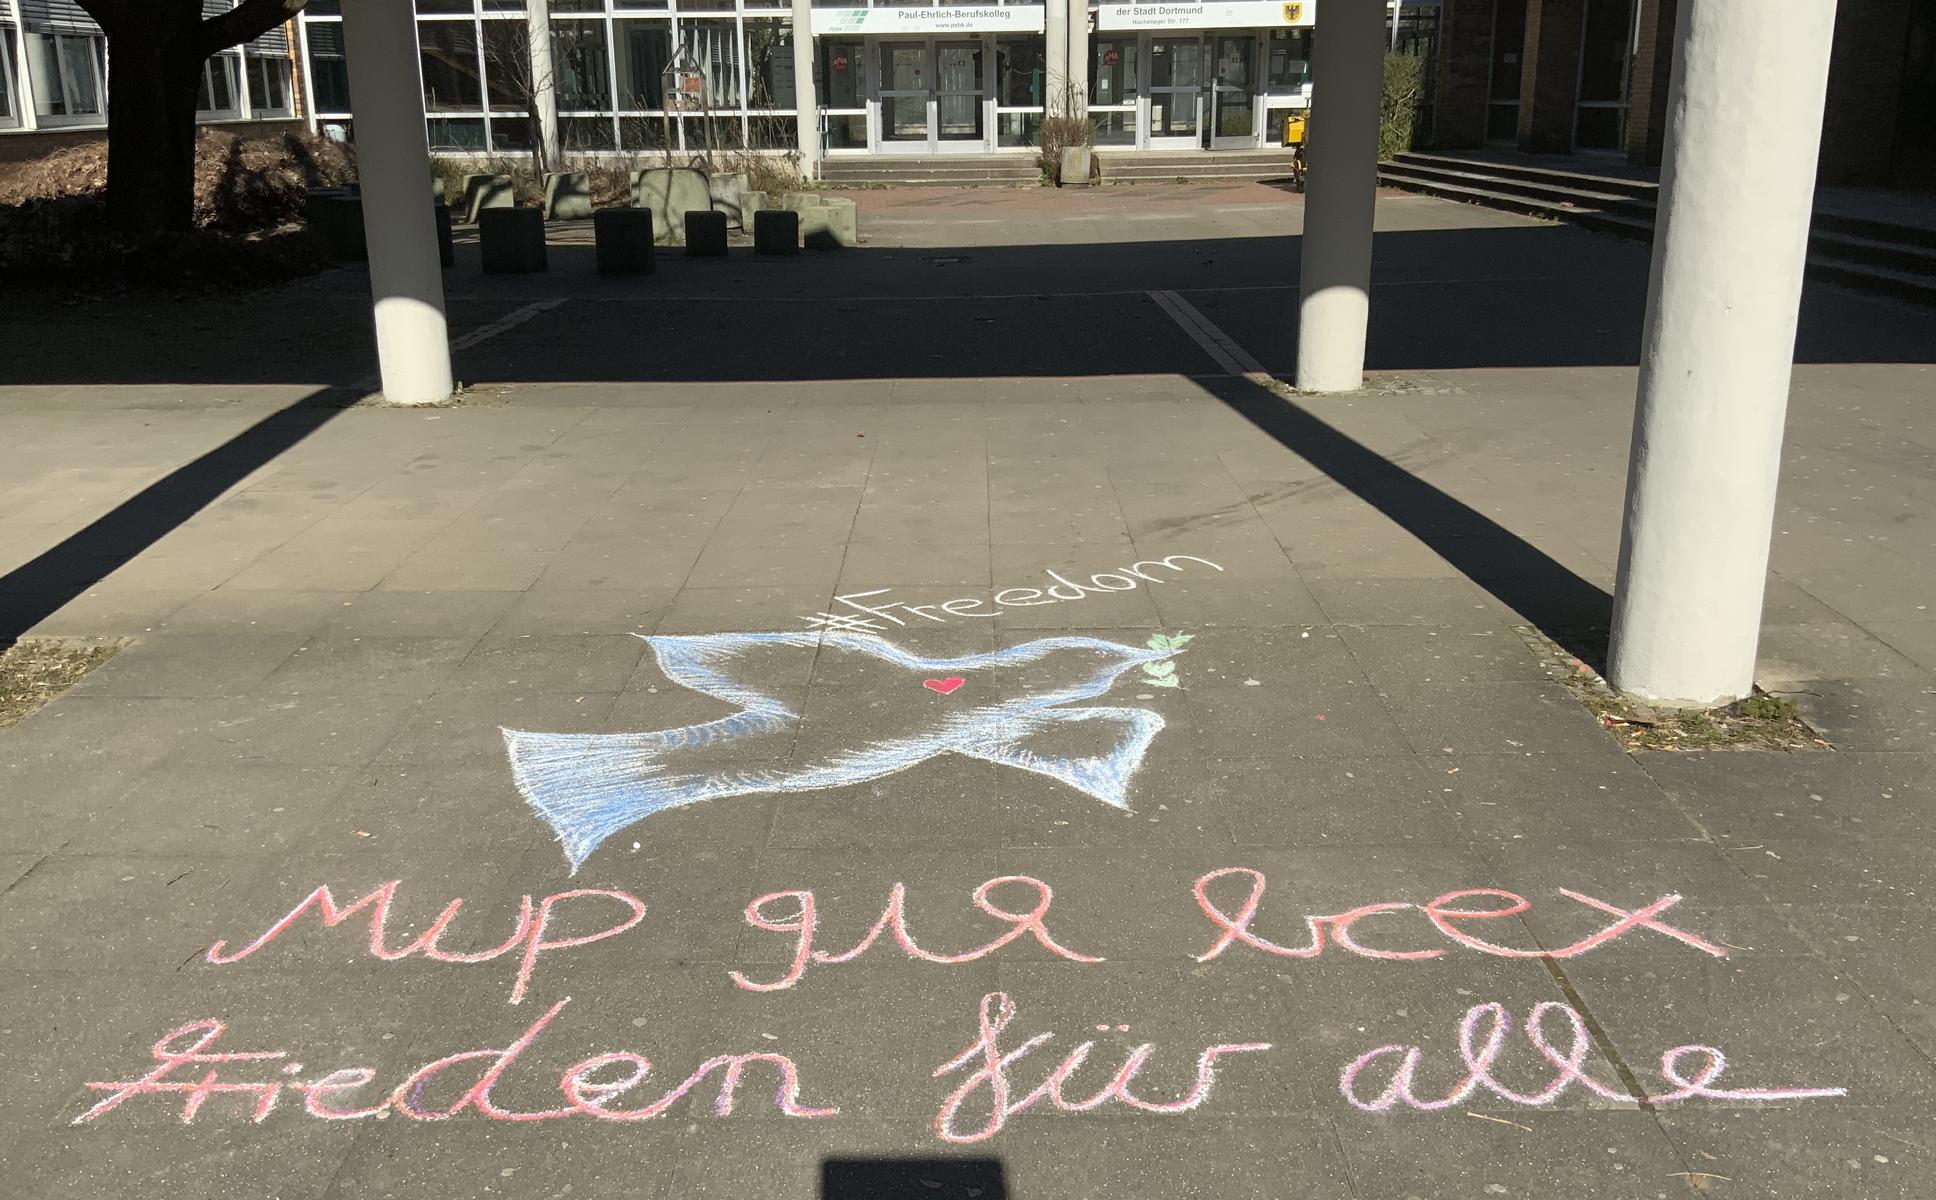 Paul-Ehrlich-Berufskolleg
www.pebk.de
PEBK
der Stadt Dortmund
Hacheneyer Str. 177
AHA
AHA
#Freedom
Мир для всех
Frieden für alle